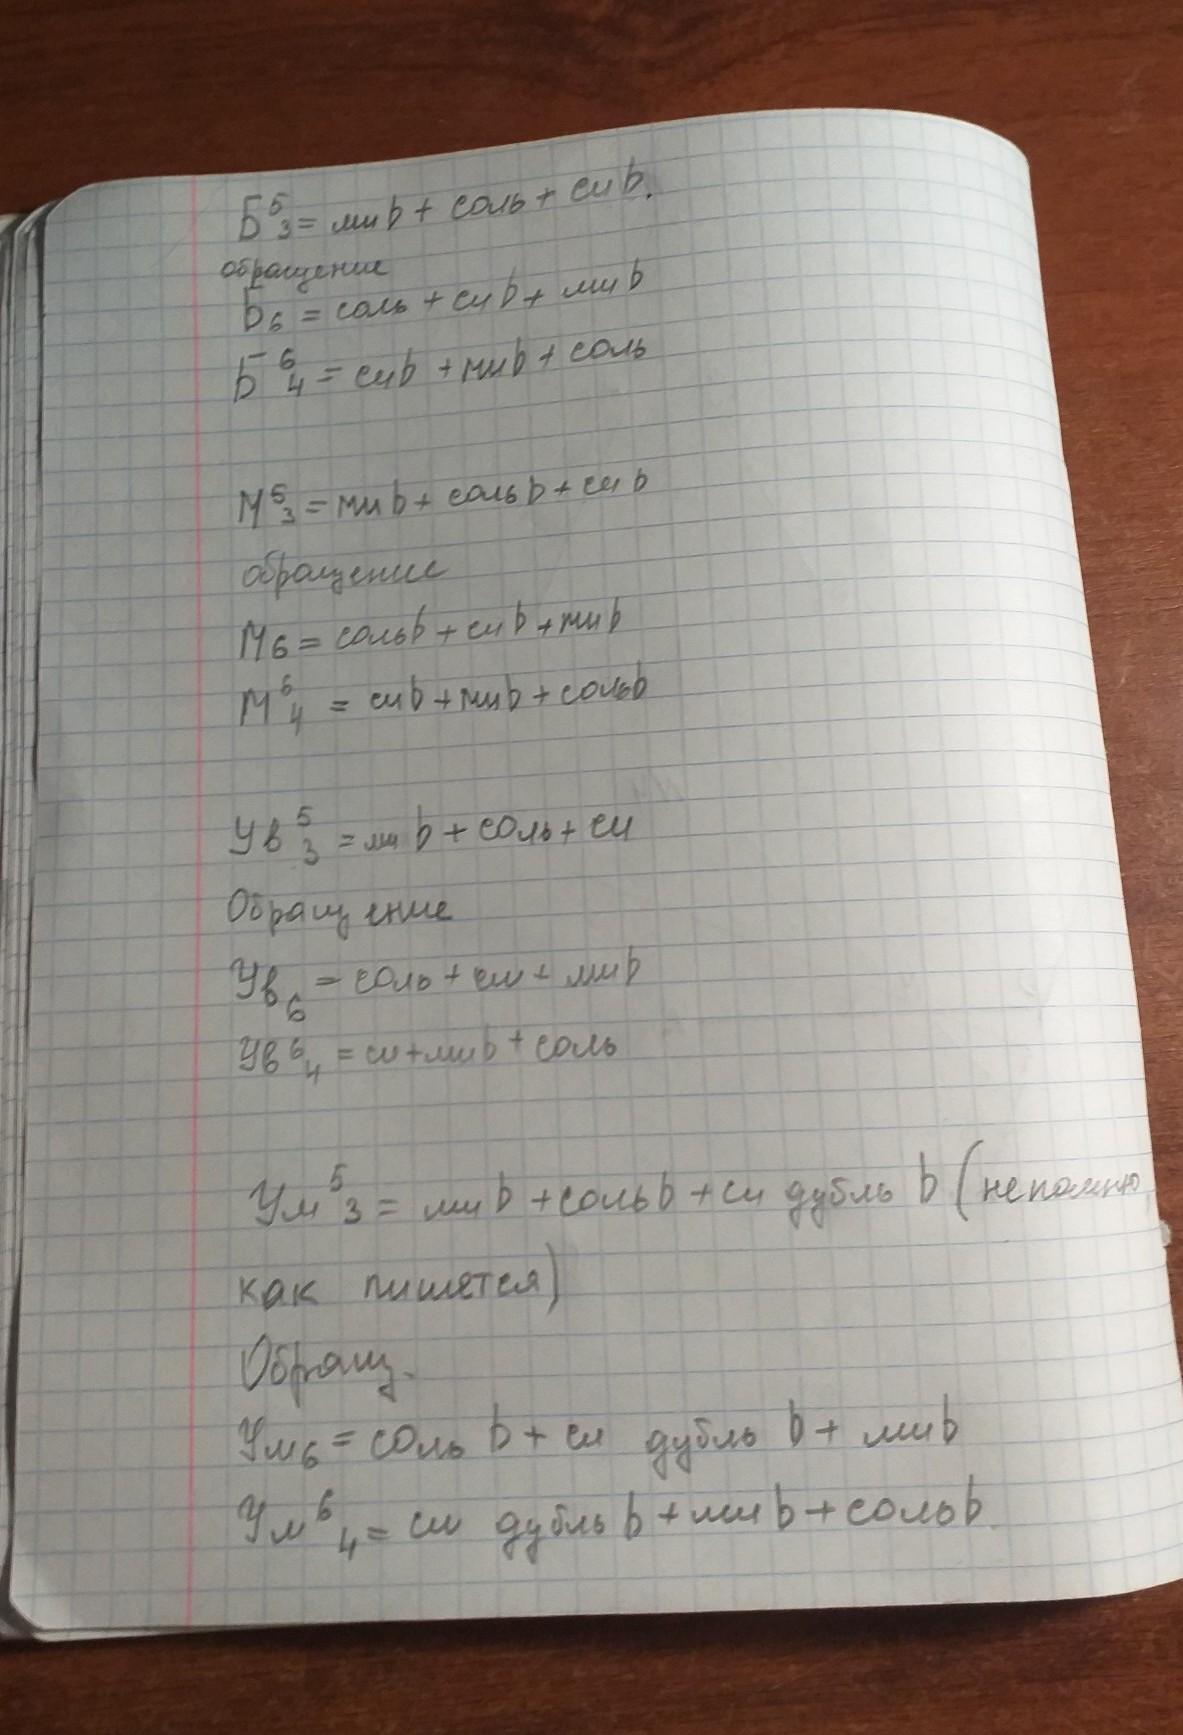 Б⁵₃ = ми b + соль + си b.
обращение
Б₆ = соль + си b + ми b
Б⁶₄ = си b + ми b + соль
М⁵₃ = ми b + соль b + си b
обращение
М₆ = соль b + си b + ми b
М⁶₄ = си b + ми b + соль b
Ув⁵₃ = ми b + соль + си
Обращение
Ув₆ = соль + си + ми b
Ув⁶₄ = си + ми b + соль
Ум⁵₃ = ми b + соль b + си дубль b (не помню
как пишется)
Обращ.
Ум₆ = соль b + си дубль b + ми b
Ум⁶₄ = си дубль b + ми b + соль b